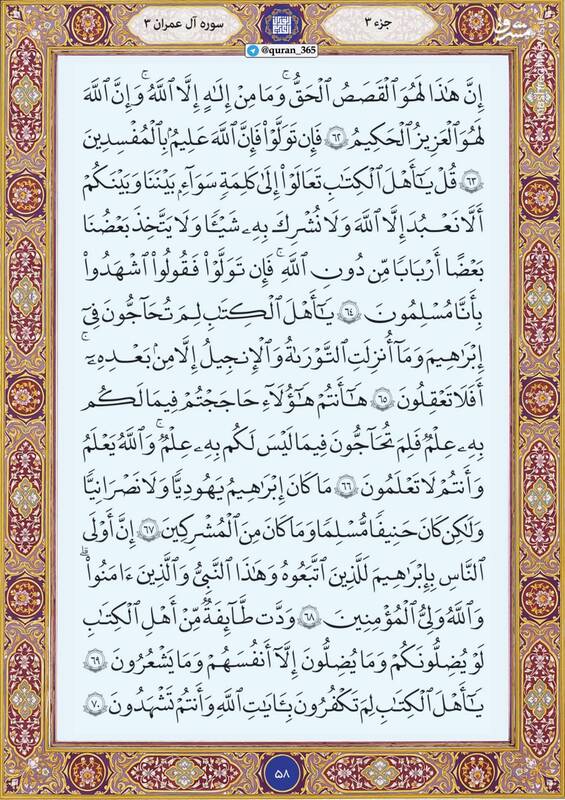 جزء ۳
سوره آل عمران ۳
@quran_365
مشرق
إِنَّ هَٰذَا لَهُوَ ٱلْقَصَصُ ٱلْحَقُّ ۚ وَمَا مِنْ إِلَٰهٍ إِلَّا ٱللَّهُ ۚ وَإِنَّ ٱللَّهَ
لَهُوَ ٱلْعَزِيزُ ٱلْحَكِيمُ ۶۲ فَإِن تَوَلَّوْا۟ فَإِنَّ ٱللَّهَ عَلِيمٌۢ بِٱلْمُفْسِدِينَ
۶۳ قُلْ يَٰٓأَهْلَ ٱلْكِتَٰبِ تَعَالَوْا۟ إِلَىٰ كَلِمَةٍ سَوَآءٍۭ بَيْنَنَا وَبَيْنَكُمْ
أَلَّا نَعْبُدَ إِلَّا ٱللَّهَ وَلَا نُشْرِكَ بِهِۦ شَيْـًٔا وَلَا يَتَّخِذَ بَعْضُنَا
بَعْضًا أَرْبَابًا مِّن دُونِ ٱللَّهِ ۚ فَإِن تَوَلَّوْا۟ فَقُولُوا۟ ٱشْهَدُوا۟
بِأَنَّا مُسْلِمُونَ ۶۴ يَٰٓأَهْلَ ٱلْكِتَٰبِ لِمَ تُحَآجُّونَ فِىٓ
إِبْرَٰهِيمَ وَمَآ أُنزِلَتِ ٱلتَّوْرَىٰةُ وَٱلْإِنجِيلُ إِلَّا مِنۢ بَعْدِهِۦٓ ۚ
أَفَلَا تَعْقِلُونَ ۶۵ هَٰٓأَنتُمْ هَٰٓؤُلَآءِ حَٰجَجْتُمْ فِيمَا لَكُم
بِهِۦ عِلْمٌ فَلِمَ تُحَآجُّونَ فِيمَا لَيْسَ لَكُم بِهِۦ عِلْمٌ ۚ وَٱللَّهُ يَعْلَمُ
وَأَنتُمْ لَا تَعْلَمُونَ ۶۶ مَا كَانَ إِبْرَٰهِيمُ يَهُودِيًّا وَلَا نَصْرَانِيًّا
وَلَٰكِن كَانَ حَنِيفًا مُّسْلِمًا وَمَا كَانَ مِنَ ٱلْمُشْرِكِينَ ۶۷ إِنَّ أَوْلَى
ٱلنَّاسِ بِإِبْرَٰهِيمَ لَلَّذِينَ ٱتَّبَعُوهُ وَهَٰذَا ٱلنَّبِىُّ وَٱلَّذِينَ ءَامَنُوا۟ ۗ
وَٱللَّهُ وَلِىُّ ٱلْمُؤْمِنِينَ ۶۸ وَدَّت طَّآئِفَةٌ مِّنْ أَهْلِ ٱلْكِتَٰبِ
لَوْ يُضِلُّونَكُمْ وَمَا يُضِلُّونَ إِلَّآ أَنفُسَهُمْ وَمَا يَشْعُرُونَ ۶۹
يَٰٓأَهْلَ ٱلْكِتَٰبِ لِمَ تَكْفُرُونَ بِـَٔايَٰتِ ٱللَّهِ وَأَنتُمْ تَشْهَدُونَ ۷۰
۵۸